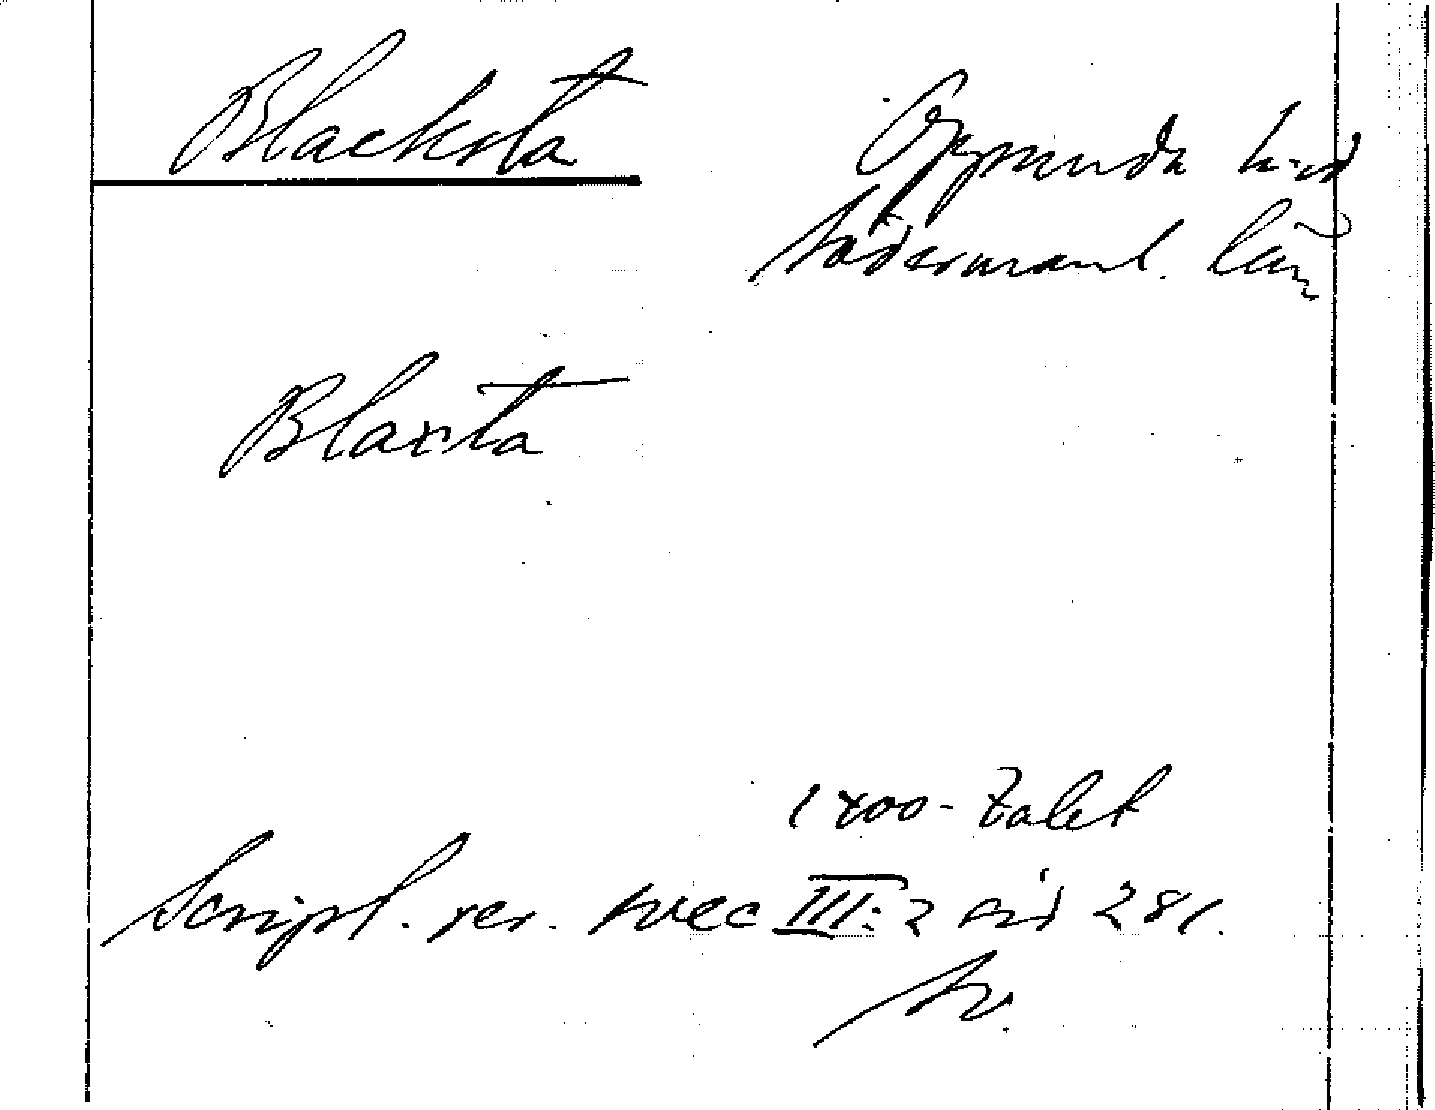 Blacksta
Oppunda h-d
Södermanl. län
Blaxta
1400-talet
Script. rer. svec III:2 sid 281.
Sv.